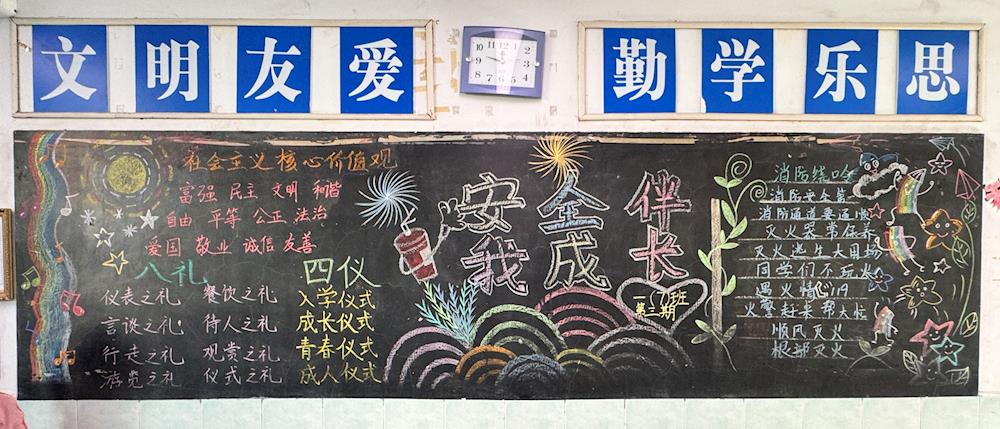 文明友爱
勤学乐思
社会主义核心价值观
富强 民主 文明 和谐
自由 平等 公正 法治
爱国 敬业 诚信 友善
八礼
仪表之礼 餐饮之礼
言谈之礼 待人之礼
行走之礼 观赏之礼
游览之礼 仪式之礼
四仪
入学仪式
成长仪式
青春仪式
成人仪式
安全伴
我成长
班
第二期
消防绕口令
消防安全第一
消防通道要通畅
灭火器常保养
灭火逃生大用场
同学们不玩火
遇火情心119
火警赶来帮大忙
顺风灭火
根部灭火